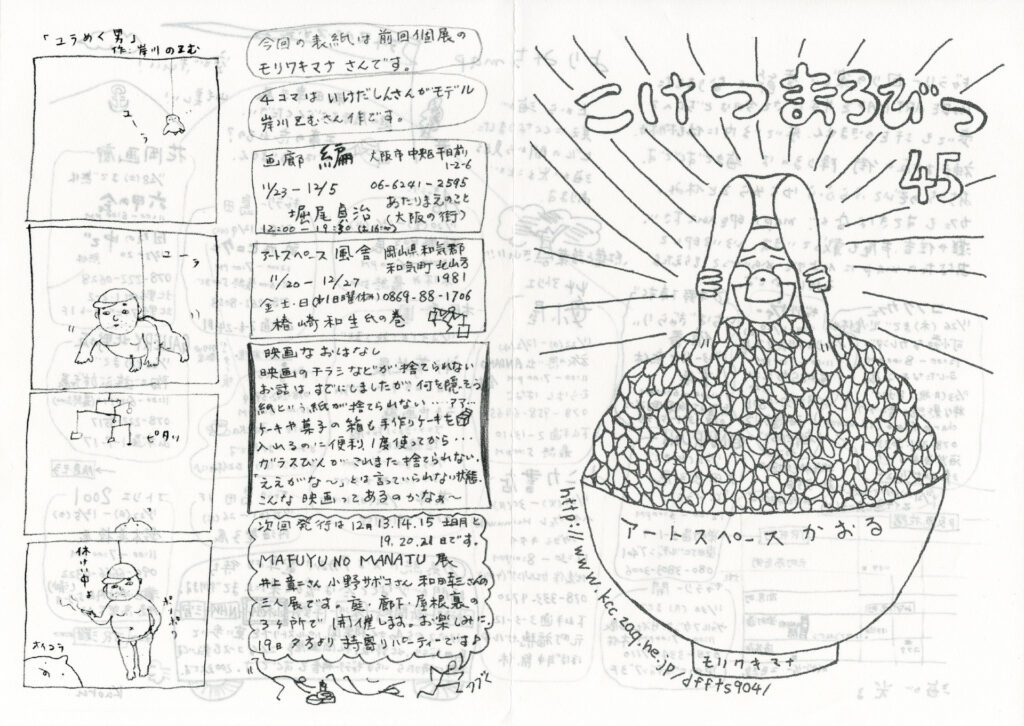 「ユラめく男」
作:岸川のぞむ
ユーラ
ユーラ
ピタッ
休け中よ
ポリポリ
オイコラ
今回の表紙は前回個展の
モリワキマナさんです。
4コマはいけだしんさんがモデル
岸川のぞむさん作です。
画廊 編 大阪市中央区千日前
1-2-6
11/23－12/5 06-6241-2595
堀尾貞治 あたりまえのこと
(大阪の街)
12:00－19:30
アートスペース 風舎 岡山県和気郡
和気町北山方
11/20－12/27 1981
金土・日 0869-88-1706
椿崎和生氏の巻
映画なおはなし
映画のチラシなどが捨てられない
お話は、すでにしましたが、何を隠そう
紙という紙が捨てられない…
ケーキや菓子の箱も手作りケーキを
入れるのに便利、1度使ってから…
ガラスびんがこれまた捨てられない。
ええがな～、とは言っていられない状態。
こんな映画ってあるのかなぁ～
次回発行は12月13.14.15 土日月と
19.20.21日です。
MAFUYU NO MANATU 展
井上章二さん 小野サボコさん 和田
三人展です。庭・廊下・屋根裏の
3ヶ所で開催します。お楽しみに。
19日夕方より 持寄りパーティーです♪
こけつまろびつ
45
アートスペースかおる
モリワキマナ
http://www.kcc.zaq.ne.jp/dffts904/